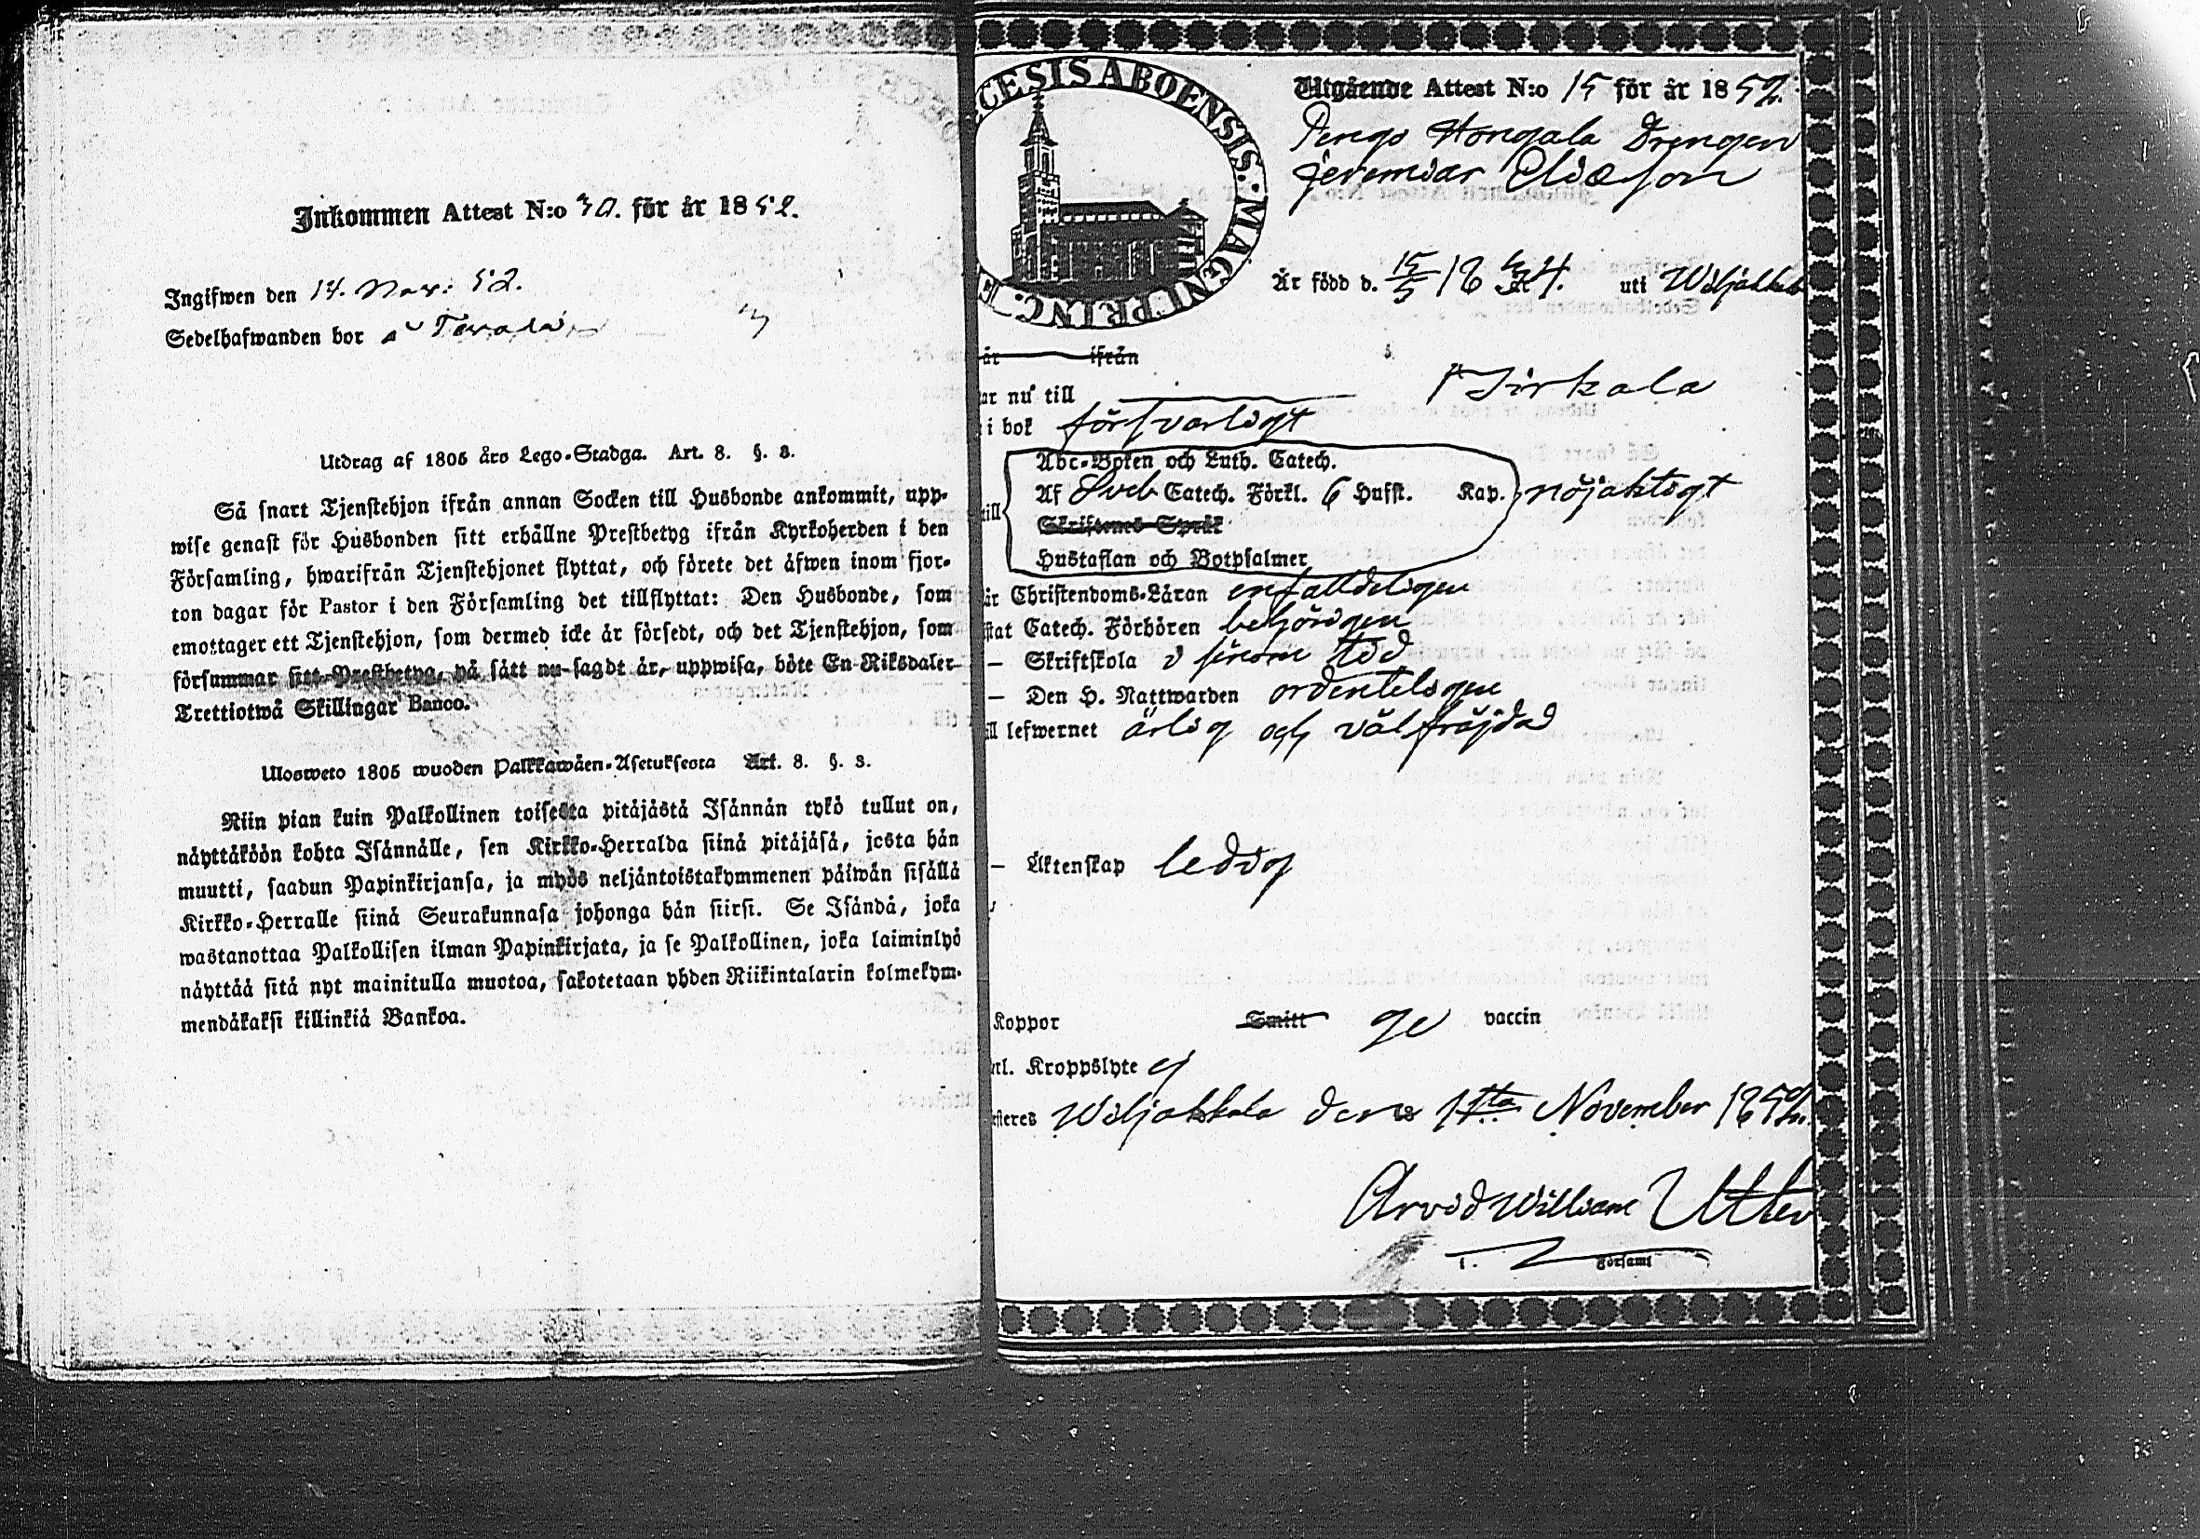 Inkommen Attest N:o 30. för år 1852.
Ingifwen den 14. Nov: 52.
Sedelhafwanden bor
Utdrag af 1805 års Lego-Stadga. Art. 8. §. 3.
Så snart Tjenstehjon ifrån annan Socken till Husbonde ankommit, upp-
wise genast för Husbonden sitt erhållne Prestbetyg ifrån Kyrkoherden i den
Församling, hwarifrån Tjenstehjonet flyttat, och förete det äfwen inom fjor-
ton dagar för Pastor i den Församling det tillflyttat: Den Husbonde, som
emottager ett Tjenstehjon, som dermed icke är försedt, och det Tjenstehjon, som
försummar sitt Prestbetyg, på sätt nu sagdt är, uppwisa, böte En Riksdaler
Trettiotwå Skillingar Banco.
Ulosweto 1805 wuoden Palkkawäen-Asetuksesta Art. 8. §. 3.
Niin pian kuin Palkollinen toisesta pitäjästä Isännän tykö tullut on,
näyttäköön kohta Isännälle, sen Kirkko-Herralda siinä pitäjäsä, josta hän
muutti, saadun Papinkirjansa, ja myös neljäntoistakymmenen päiwän sisällä
Kirkko-Herralle siinä Seurakunnasa johonga hän siirsi. Se Isändä, joka
wastanottaa Palkollisen ilman Papinkirjata, ja se Palkollinen, joka laiminlyö
näyttää sitä nyt mainitulla muotoa, sakotetaan yhden Riikintalarin kolmekym-
mendäkaksi killinkiä Bankoa.
CESIS ABOENSIS. MAGNI PRINC. F
Utgående Attest N:o 15 för år 1852.
Hongala Drengen
Jeremias Eliasson
Är född d. 15/5 1834. uti Wiljakkala
är ifrån
ar nu till Birkala
i bok försvarligt
Abc-Boken och Luth. Catech.
till Af Sveb Catech. Förkl. 6 Hufst. Kap. nöjaktigt
Skriftenes Språk
Hustaflan och Botpsalmer
är Christendoms-Läran enfalldeligen
stat Catech. Förhören behörigen
— Skriftskola i sinom tid
— Den H. Nattwarden ordenteligen
ll lefwernet ärlig och välfräjdad
— Äktenskap ledig
Koppor Smitt ge vaccin
rl. Kroppslyte ej
steres Wiljakkala den 1sta November 1852.
Arvid William
i. Församl